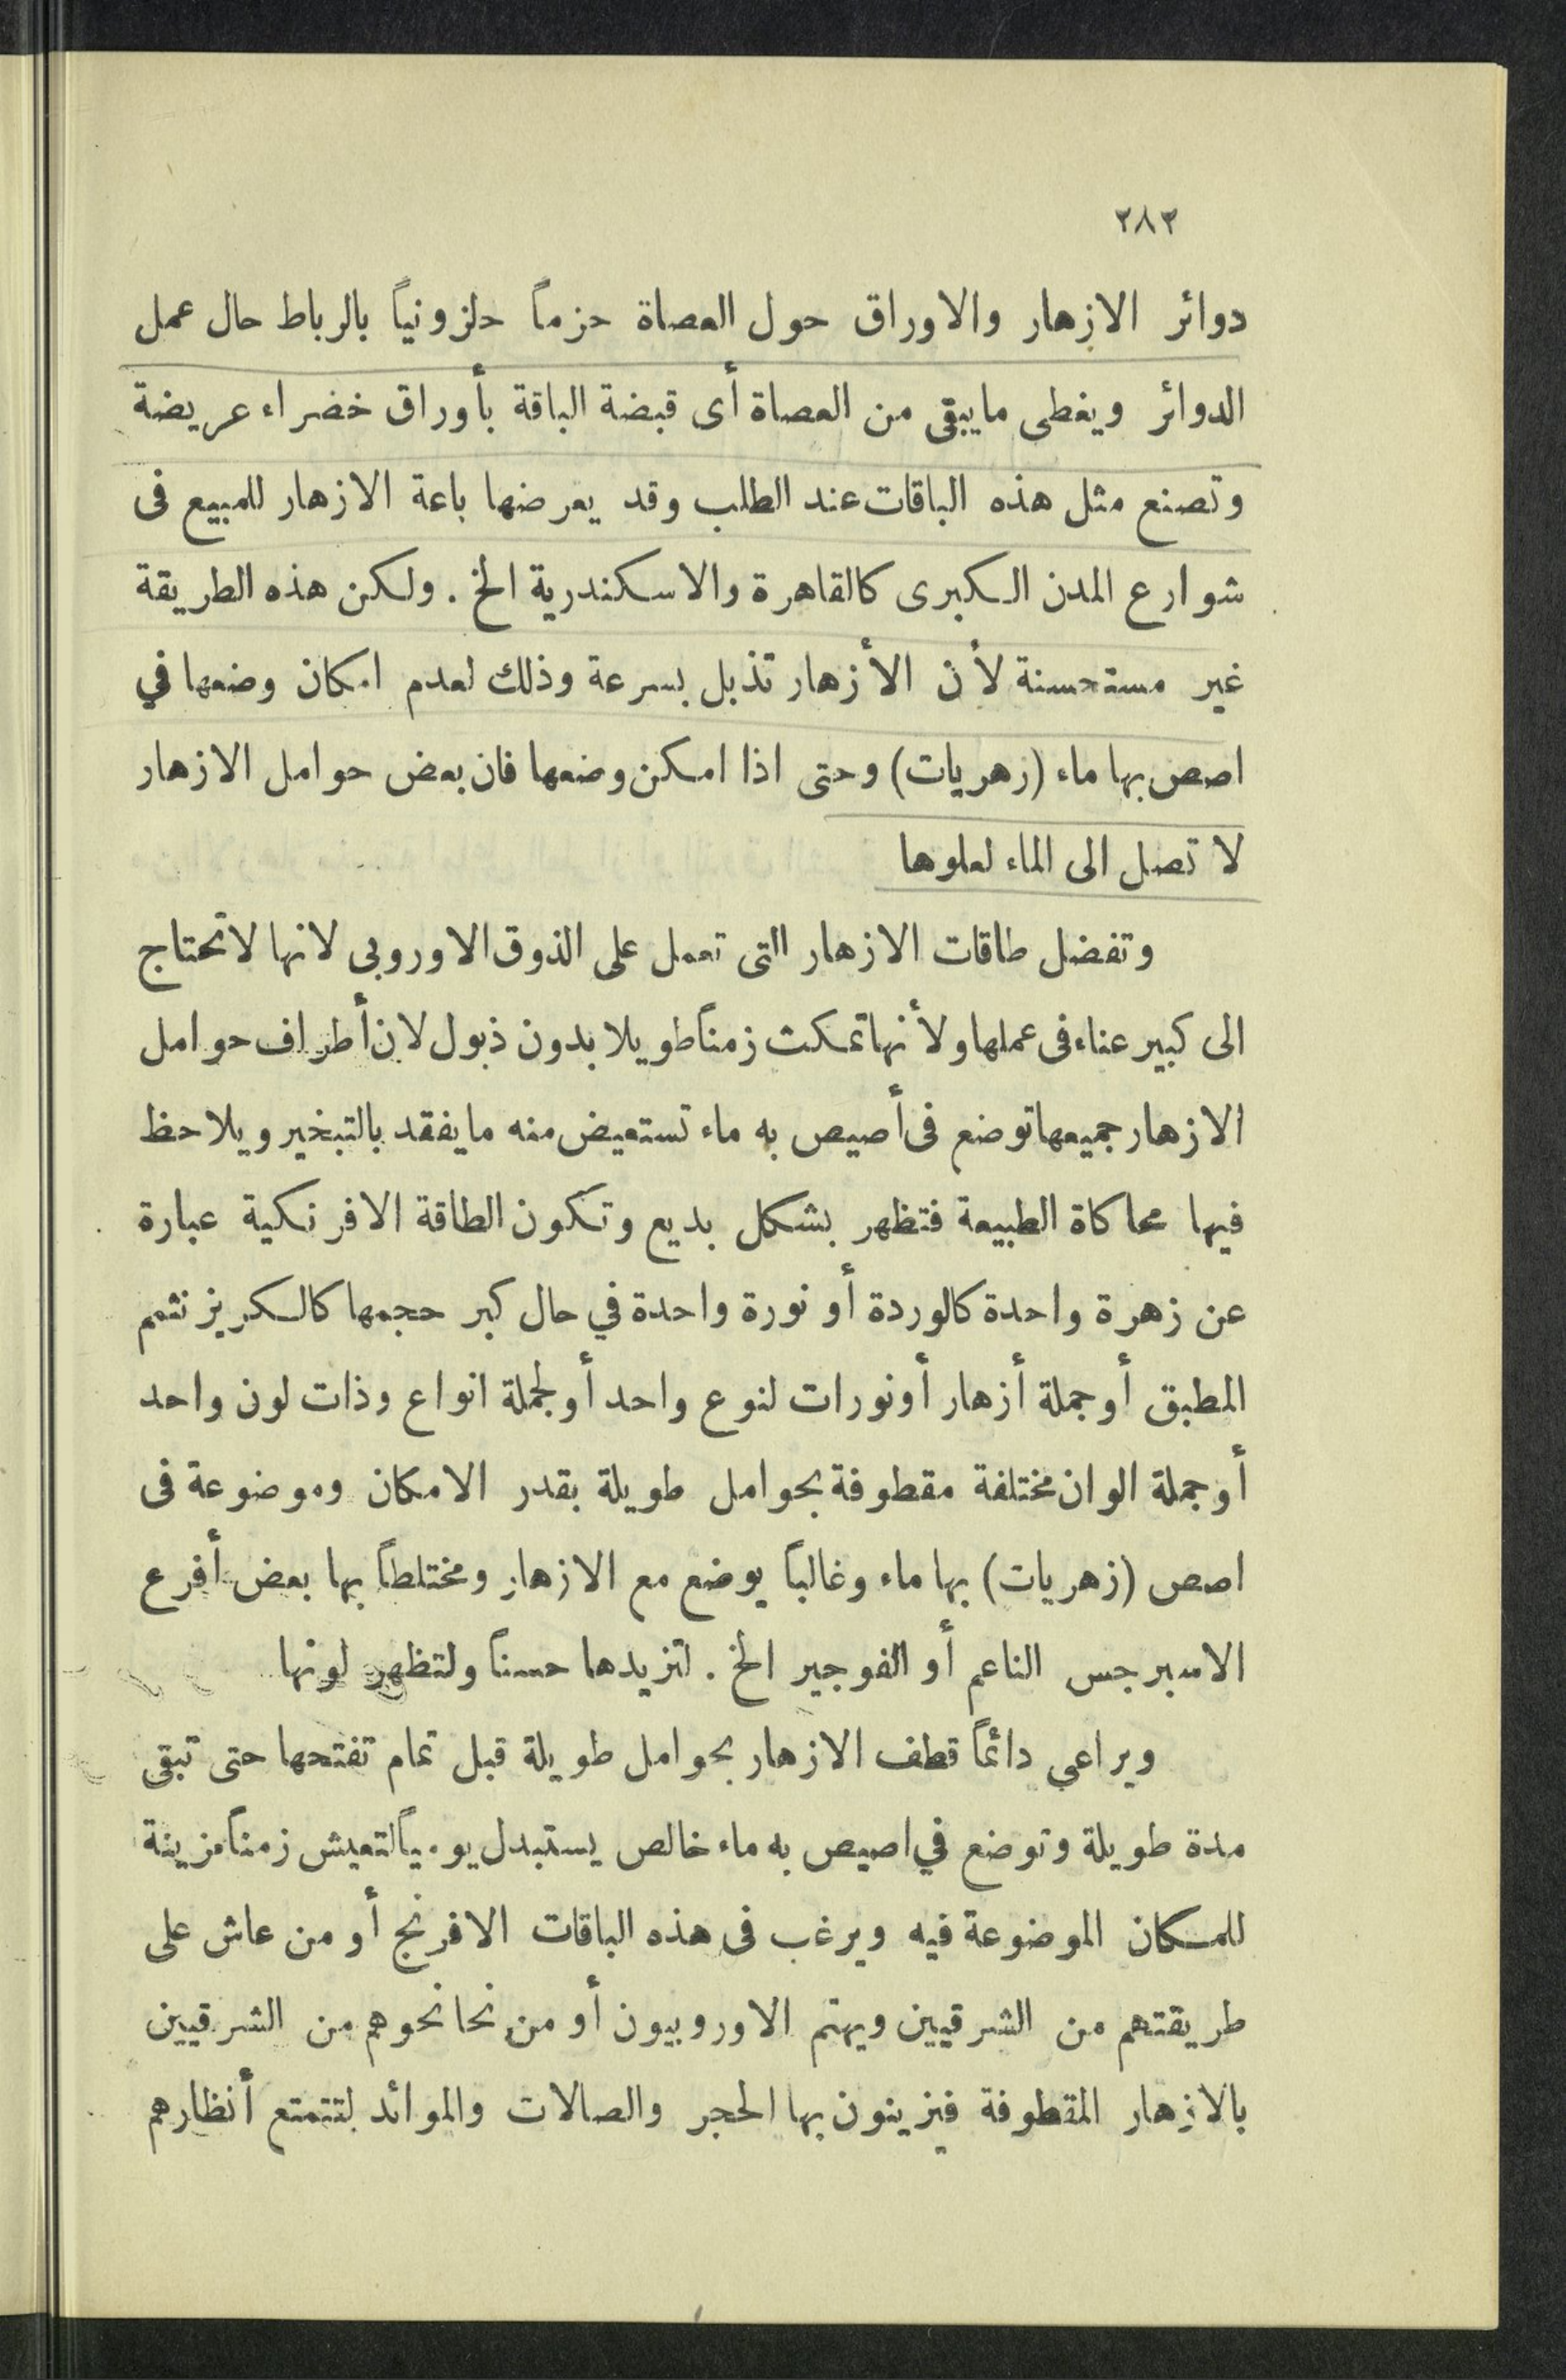 ٢٨٣
دوائر الازهار والاوراق حول العصاة حزماً حلزونياً بالرباط حال عمل
الدوائر ويغطى مايبقى من العصاة أى قبضة الباقة بأوراق خضراء عريضة
وتصنع مثل هذه الباقات عند الطلب وقد يعرضها باعة الازهار للمبيع فى
شوارع المدن الكبرى كالقاهرة والاسكندرية الخ . ولكن هذه الطريقة
غير مستحسنة لأن الأزهار تذبل بسرعة وذلك لعدم امكان وضعها في
اصص بها ماء (زهريات) وحتى اذا امكن وضعها فان بعض حوامل الازهار
لا تصل الى الماء لعلوها
وتفضل طاقات الازهار التى تعمل على الذوق الاوروبى لانها لاتحتاج
الى كبير عناء فى عملها ولأنها تمكث زمناً طويلا بدون ذبول لان أطراف حوامل
الازهار جميعها توضع فى أصيص به ماء تستعيض منه ما يفقد بالتبخير ويلاحظ
فيها محاكاة الطبيعة فتظهر بشكل بديع وتكون الطاقة الافرنكية عبارة
عن زهرة واحدة كالوردة أو نورة واحدة في حال كبر حجمها كالكريزنثمم
المطبق أو جملة أزهار أو نورات لنوع واحد أو لجملة انواع وذات لون واحد
أو جملة الوان مختلفة مقطوفة بحوامل طويلة بقدر الامكان وموضوعة فى
اصص (زهريات) بها ماء وغالباً يوضع مع الازهار ومختلطاً بها بعض أفرع
الاسبرجس الناعم أو الفوجير الخ . لتزيدها حسناً ولتظهر لونها
ويراعي دائماً قطف الازهار بحوامل طويلة قبل تمام تفتحها حتى تبقى
مدة طويلة وتوضع في اصيص به ماء خالص يستبدل يومياً لتعيش زمناً مزينة
للمكان الموضوعة فيه ويرغب فى هذه الباقات الافرنج أو من عاش على
طريقتهم من الشرقيين ويهتم الاوروبيون أو من نحا نحوهم من الشرقيين
بالازهار المقطوفة فيزينون بها الحجر والصالات والموائد لتتمتع أنظارهم